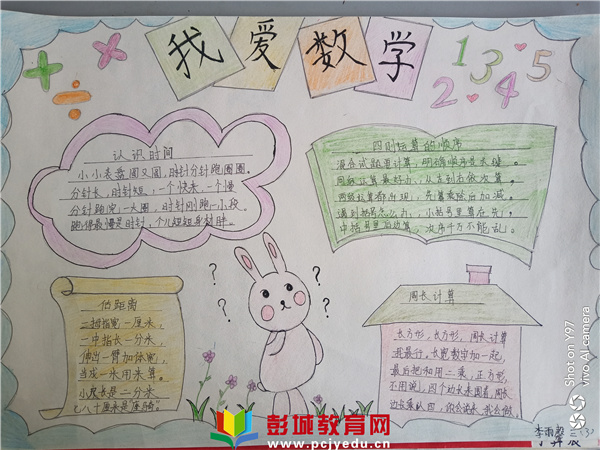 我爱数学
1 3 5
2 4
认识时间
小小表盘圆又圆，时针分针跑圈圈。
分针长，时针短，一个快来，一个慢
分针跑完一大圈，时针刚跑一小段。
跑得最慢是时针，个儿短短身材胖。
四则运算的顺序
混合试题要计算，明确顺序是关键。
同级运算最好办，从左到右依次算。
两级运算都出现，先算乘除后加减。
遇到括号怎么办，小括号里算在先，
中括号里后边算，次序千万不能乱。
估距离
二拇指宽一厘米，
一中指长一分米，
伸出一臂加体宽，
当成一米用来算。
小虎长是二分米
七八十厘米是座椅
周长计算
长方形，长方形，周长计算
我最行，长宽数字加一起，
最后把和用二乘，正方形，
不用说，四个边长来围着，周长
边长乘以四，
?
?
?
?
彭城教育网
www.pcjyedu.cn
Shot on Y97
vivo AI camera
三(3)